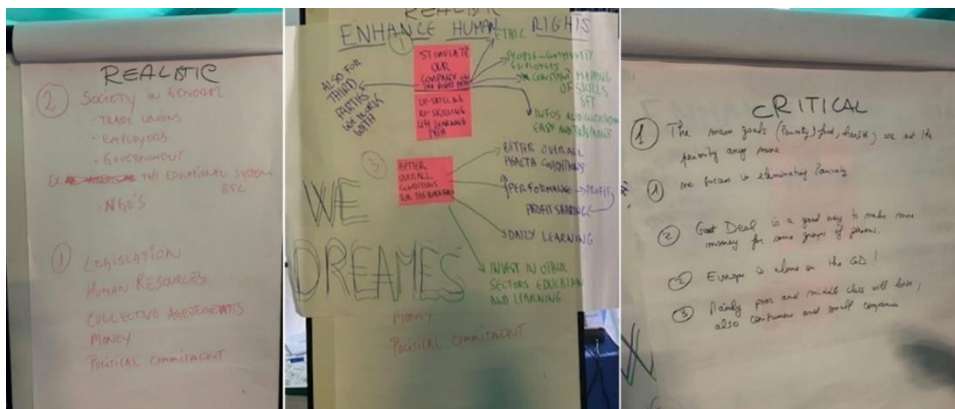 REALISTIC
② SOCIETY IN GENERAL
· TRADE UNIONS
· EMPLOYERS
· GOVERNMENT
THE EDUCATIONAL SYSTEM
ETC
· NGO'S
① LEGISLATION
HUMAN RESOURCES
COLLECTIVE AGREEMENTS
MONEY
POLITICAL COMMITMENT
REALISTIC
ENHANCE HUMAN RIGHTS
①
ETHIC
STIMULATE
OUR
COMPANY
UP-SKILLING
RE-SKILLING
LIFE LEARNING
PATH
ALSO FOR
THIRD
PARTIES
WE WORK
WITH
PEOPLE-COMMUNITY
EMPLOYERS
CONSTANT MAPPING
OF SKILLS
SET
INFOS AND
EASY AND
③
BETTER
OVERALL
CONDITIONS
FOR THE
BETTER OVERALL
HEALTH CONDITIONS
PERFORMANCE → PROFIT
PROFIT SHARING
DAILY LEARNING
INVEST IN OTHER
SECTORS EDUCATION
AND LEARNING
WE
DREAMES
MONEY
POLITICAL COMMITMENT
CRITICAL
① The main goals are not the
priority any more
① no focus in eliminating Poverty
② Deal is a good way to make more
money for some groups of persons.
② Europe is alone on the GD!
③ Mainly poor and middle class will lose,
also consumers and small companies